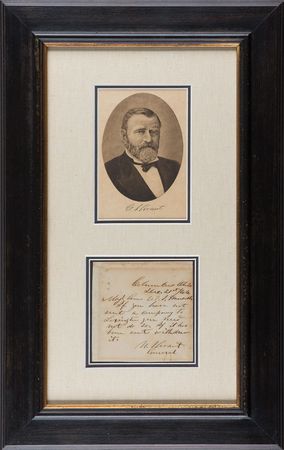 U.S. Grant
Columbus Ohio
Maj Genl
If you have not
sent a company to
Lexington you need
not do so. If it has
been sent withdraw
it.
U.S. Grant
General